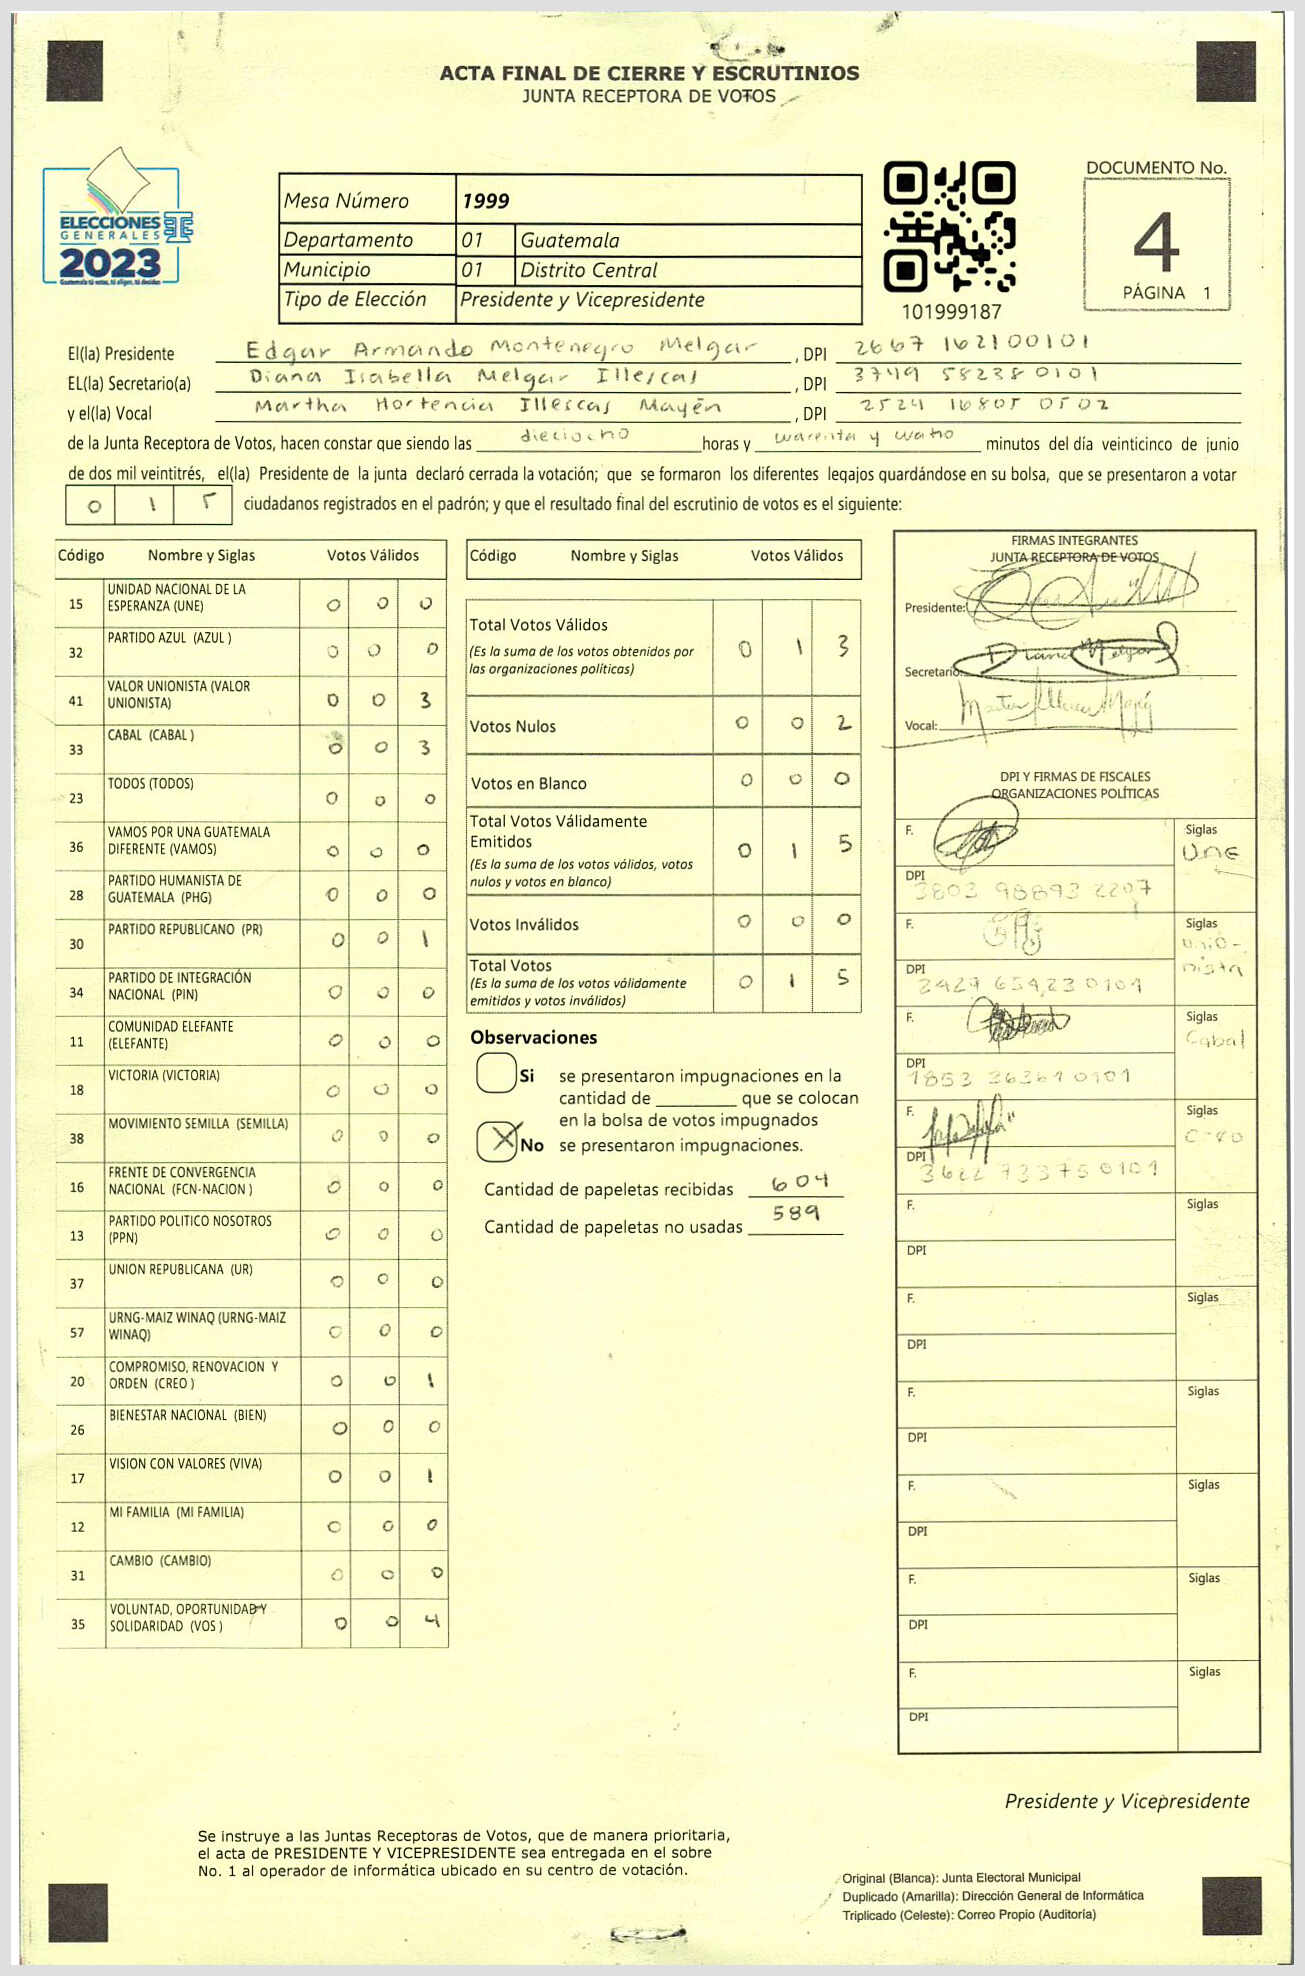 ACTA FINAL DE CIERRE Y ESCRUTINIOS
JUNTA RECEPTORA DE VOTOS
ELECCIONES
GENERALES
2023
Guatemala tú votas, tú eliges, tú decides
TSE
Mesa Número 1999
Departamento 01 Guatemala
Municipio 01 Distrito Central
Tipo de Elección Presidente y Vicepresidente
101999187
DOCUMENTO No.
4
PÁGINA 1
El(la) Presidente Edgar Armando Montenegro Melgar, DPI 2667 162100101
EL(la) Secretario(a) Diana Isabella Melgar Illescas, DPI 3749 582380101
y el(la) Vocal Martha Hortencia Illescas Mayén, DPI 2524 16805 0502
de la Junta Receptora de Votos, hacen constar que siendo las dieciocho horas y warenta y watro minutos del día veinticinco de junio
de dos mil veintitrés, el(la) Presidente de la junta declaró cerrada la votación; que se formaron los diferentes legajos quardándose en su bolsa, que se presentaron a votar
0 1 5 ciudadanos registrados en el padrón; y que el resultado final del escrutinio de votos es el siguiente:
Código Nombre y Siglas Votos Válidos
15 UNIDAD NACIONAL DE LA ESPERANZA (UNE) 0 0 0
32 PARTIDO AZUL (AZUL ) 0 0 0
41 VALOR UNIONISTA (VALOR UNIONISTA) 0 0 3
33 CABAL (CABAL ) 0 0 3
23 TODOS (TODOS) 0 0 0
36 VAMOS POR UNA GUATEMALA DIFERENTE (VAMOS) 0 0 0
28 PARTIDO HUMANISTA DE GUATEMALA (PHG) 0 0 0
30 PARTIDO REPUBLICANO (PR) 0 0 1
34 PARTIDO DE INTEGRACIÓN NACIONAL (PIN) 0 0 0
11 COMUNIDAD ELEFANTE (ELEFANTE) 0 0 0
18 VICTORIA (VICTORIA) 0 0 0
38 MOVIMIENTO SEMILLA (SEMILLA) 0 0 0
16 FRENTE DE CONVERGENCIA NACIONAL (FCN-NACION ) 0 0 0
13 PARTIDO POLITICO NOSOTROS (PPN) 0 0 0
37 UNION REPUBLICANA (UR) 0 0 0
57 URNG-MAIZ WINAQ (URNG-MAIZ WINAQ) 0 0 0
20 COMPROMISO, RENOVACION Y ORDEN (CREO ) 0 0 1
26 BIENESTAR NACIONAL (BIEN) 0 0 0
17 VISION CON VALORES (VIVA) 0 0 1
12 MI FAMILIA (MI FAMILIA) 0 0 0
31 CAMBIO (CAMBIO) 0 0 0
35 VOLUNTAD, OPORTUNIDAD Y SOLIDARIDAD (VOS ) 0 0 4
Código Nombre y Siglas Votos Válidos
Total Votos Válidos 0 1 3
(Es la suma de los votos obtenidos por
las organizaciones politicas)
Votos Nulos 0 0 2
Votos en Blanco 0 0 0
Total Votos Válidamente
Emitidos 0 1 5
(Es la suma de los votos válidos, votos
nulos y votos en blanco)
Votos Inválidos 0 0 0
Total Votos 0 1 5
(Es la suma de los votos válidamente
emitidos y votos inválidos)
Observaciones
Si se presentaron impugnaciones en la
cantidad de ________ que se colocan
en la bolsa de votos impugnados
X No se presentaron impugnaciones.
Cantidad de papeletas recibidas 604
Cantidad de papeletas no usadas 589
FIRMAS INTEGRANTES
JUNTA RECEPTORA DE VOTOS
Presidente:
Secretario: Diana Melgar
Vocal:
DPI Y FIRMAS DE FISCALES
ORGANIZACIONES POLÍTICAS
F. Siglas
UNE
DPI 3803 98893 2207
F. Siglas
Unio-
nista
DPI 3429 65923 0101
F. Siglas
Cabal
DPI 1853 36361 0101
F. Siglas
DPI 3622 73375 0101
F. Siglas
DPI
F. Siglas
DPI
F. Siglas
DPI
F. Siglas
DPI
F. Siglas
DPI
F. Siglas
DPI
Presidente y Vicepresidente
Se instruye a las Juntas Receptoras de Votos, que de manera prioritaria,
el acta de PRESIDENTE Y VICEPRESIDENTE sea entregada en el sobre
No. 1 al operador de informática ubicado en su centro de votación.
Original (Blanca): Junta Electoral Municipal
Duplicado (Amarilla): Dirección General de Informática
Triplicado (Celeste): Correo Propio (Auditoría)